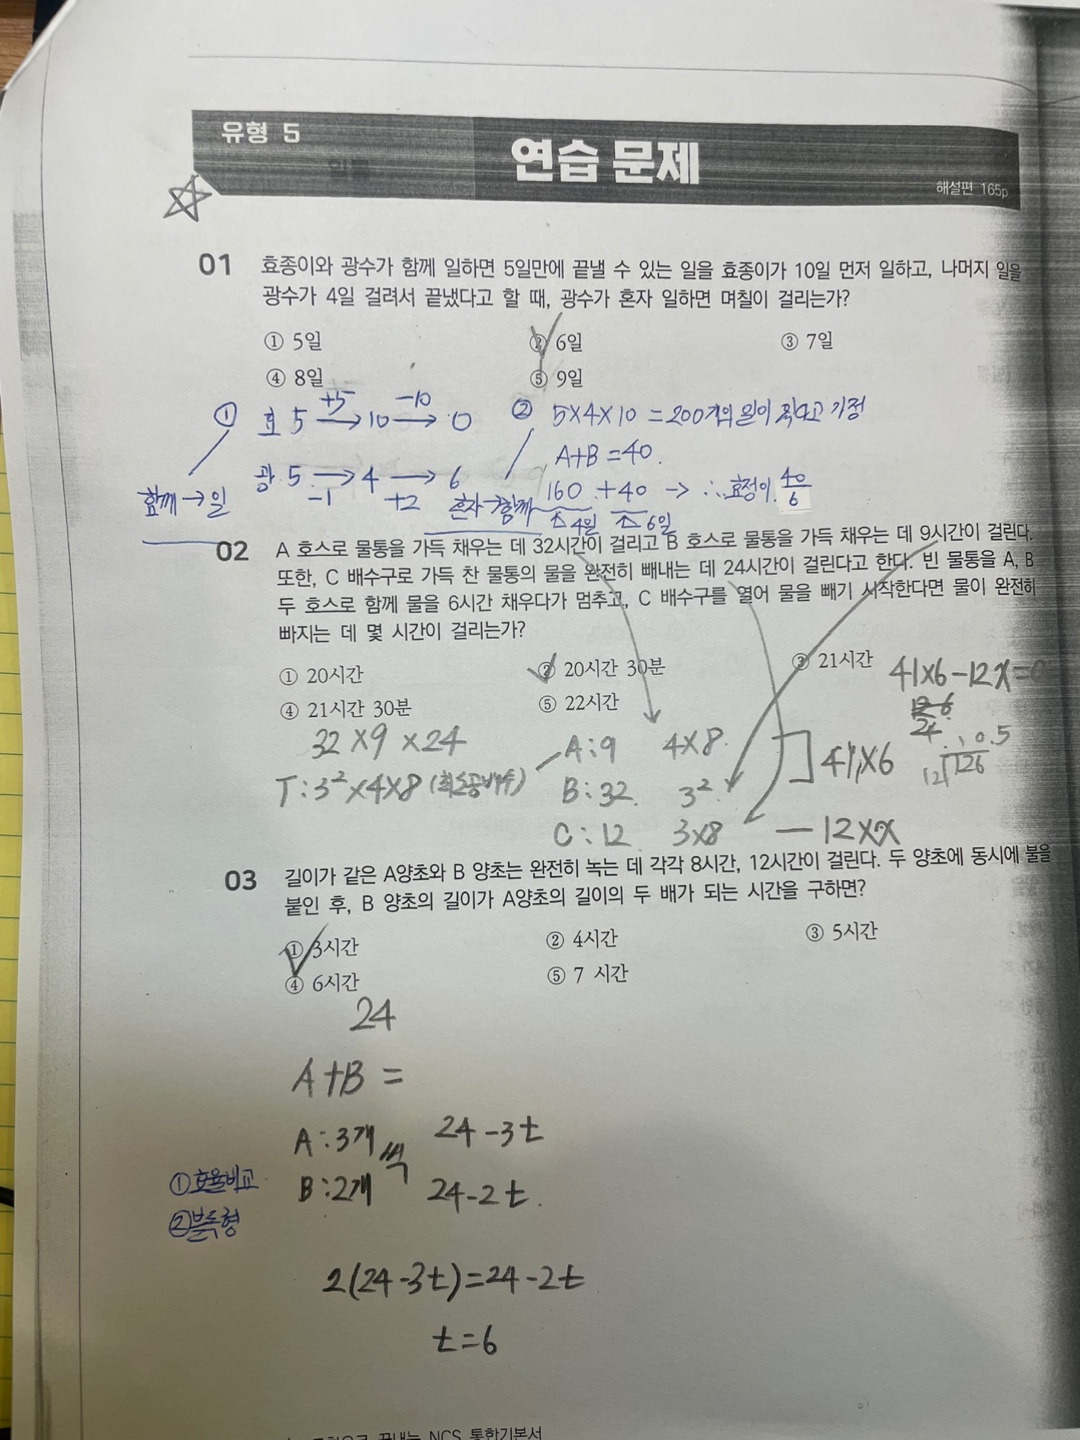 유형 5
연습 문제
해설편 165p
01 효종이와 광수가 함께 일하면 5일만에 끝낼 수 있는 일을 효종이가 10일 먼저 일하고, 나머지 일을
광수가 4일 걸려서 끝냈다고 할 때, 광수가 혼자 일하면 며칠이 걸리는가?
① 5일 ② 6일 ③ 7일
④ 8일 ⑤ 9일
① 효 5 +5→ 10 -10→ 0
② 5×4×10 = 200개의 일이 있다고 가정
A+B=40.
광 5 -1→ 4 +2→ 6
160 + 40 → ∴ 효정이 40/6
함께→일
혼자→함께
4일 6일
02 A 호스로 물통을 가득 채우는 데 32시간이 걸리고 B 호스로 물통을 가득 채우는 데 9시간이 걸린다.
또한, C 배수구로 가득 찬 물통의 물을 완전히 빼내는 데 24시간이 걸린다고 한다. 빈 물통을 A, B
두 호스로 함께 물을 6시간 채우다가 멈추고, C 배수구를 열어 물을 빼기 시작한다면 물이 완전히
빠지는 데 몇 시간이 걸리는가?
① 20시간 ② 20시간 30분 ③ 21시간
④ 21시간 30분 ⑤ 22시간
41×6-12x=0
24
10.5
12 126
32×9×24
T:3²×4×8 (최소공배수)
A:9 4×8
B:32 3²
C:12 3×8
41×6
-12×x
03 길이가 같은 A양초와 B 양초는 완전히 녹는 데 각각 8시간, 12시간이 걸린다. 두 양초에 동시에 불을
붙인 후, B 양초의 길이가 A양초의 길이의 두 배가 되는 시간을 구하면?
① 3시간 ② 4시간 ③ 5시간
④ 6시간 ⑤ 7 시간
24
A+B=
A:3개 씩 24-3t
B:2개 24-2t.
① 효율비교
②
2(24-3t)=24-2t
t=6
NCS 통합기본서